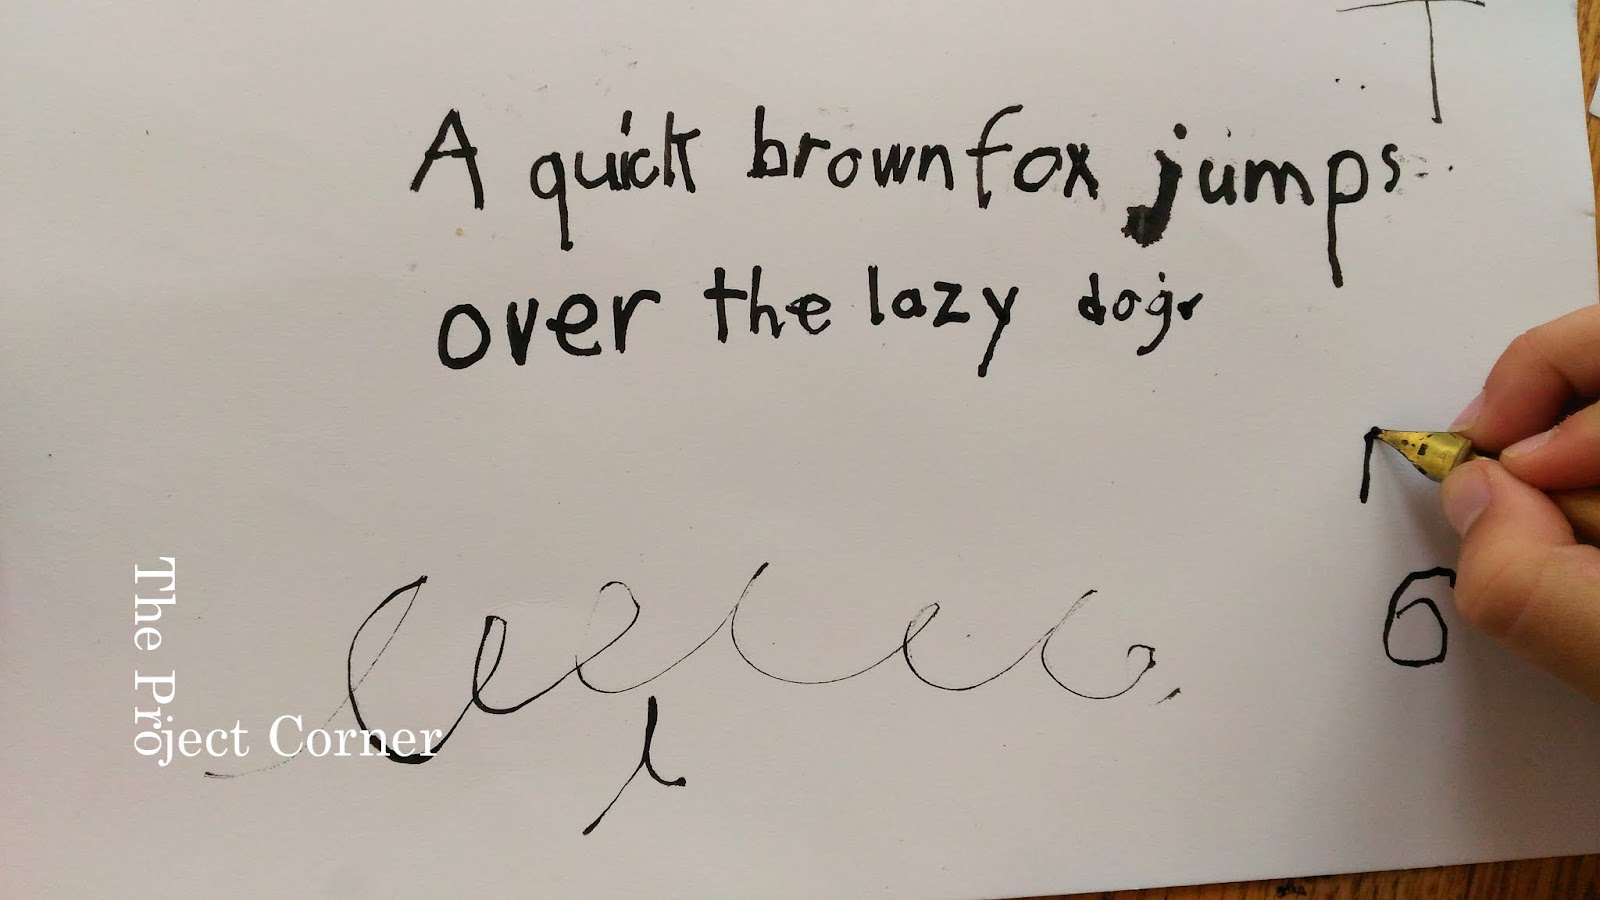 T
A quick brown fox jumps
over the lazy dog.
6
The Project Corner